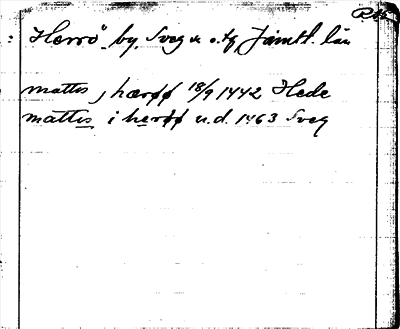 Herrö by, Sveg s. o. tg Jämtl. län
mattis j hærøø 18/9 1442 Hede
mattis i herøø u.d. 1463 Sveg